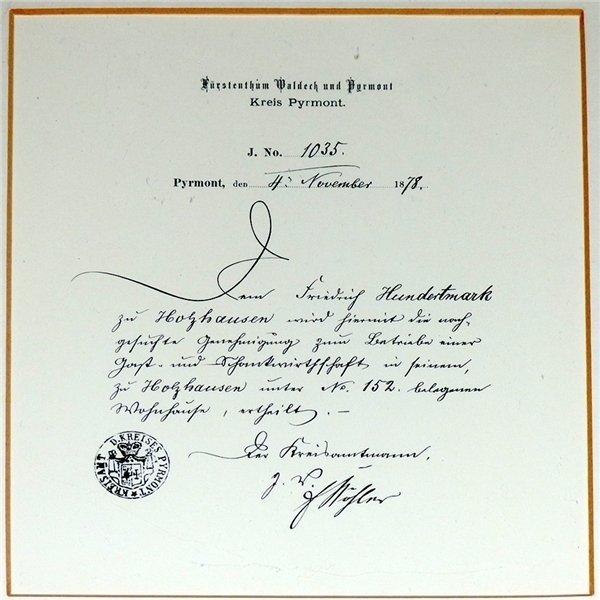 Fürstenthum Waldeck und Pyrmont
Kreis Pyrmont.
J. No. 1035.
Pyrmont, den 4. November 1878.
Dem Friedrich Hundertmark
zu Holzhausen wird hiermit die nach-
gesuchte Genehmigung zum Betriebe einer
Gast- und Schankwirthschaft in seinem,
zu Holzhausen unter No. 152. belegenen
Wohnhause, ertheilt. —
Der Kreisamtmann.
KREISAMT D. KREISES PYRMONT